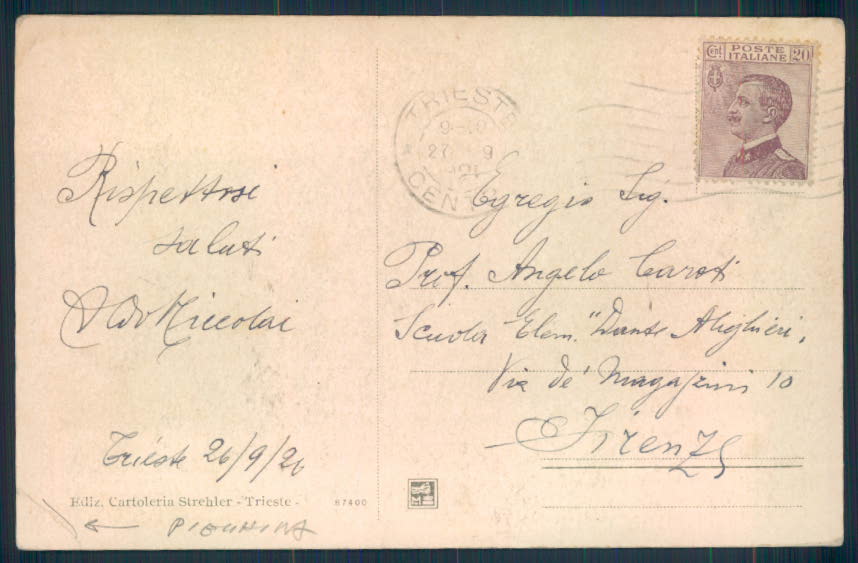 Rispettosi
saluti
Aldo Niccolai
Trieste 26/9/26
Ediz. Cartoleria Strehler - Trieste -
67400
← PIEGHINA
TRIESTE
CENTRO
Cent. POSTE ITALIANE 20
Egregio Sig.
Prof. Angelo Caroti
Scuola Elem. "Dante Alighieri,
Via de' Magazzini 10
Firenze